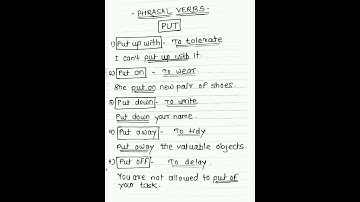 - PHRASAL VERBS -
PUT
1) Put up with - To tolerate
I can't put up with it.
2) Put on - To wear.
She put on new pair of shoes.
3) Put down - To write
Put down your name.
4) Put away - To tidy
Put away the valuable objects.
5) Put off - To delay.
You are not allowed to put of
your task.